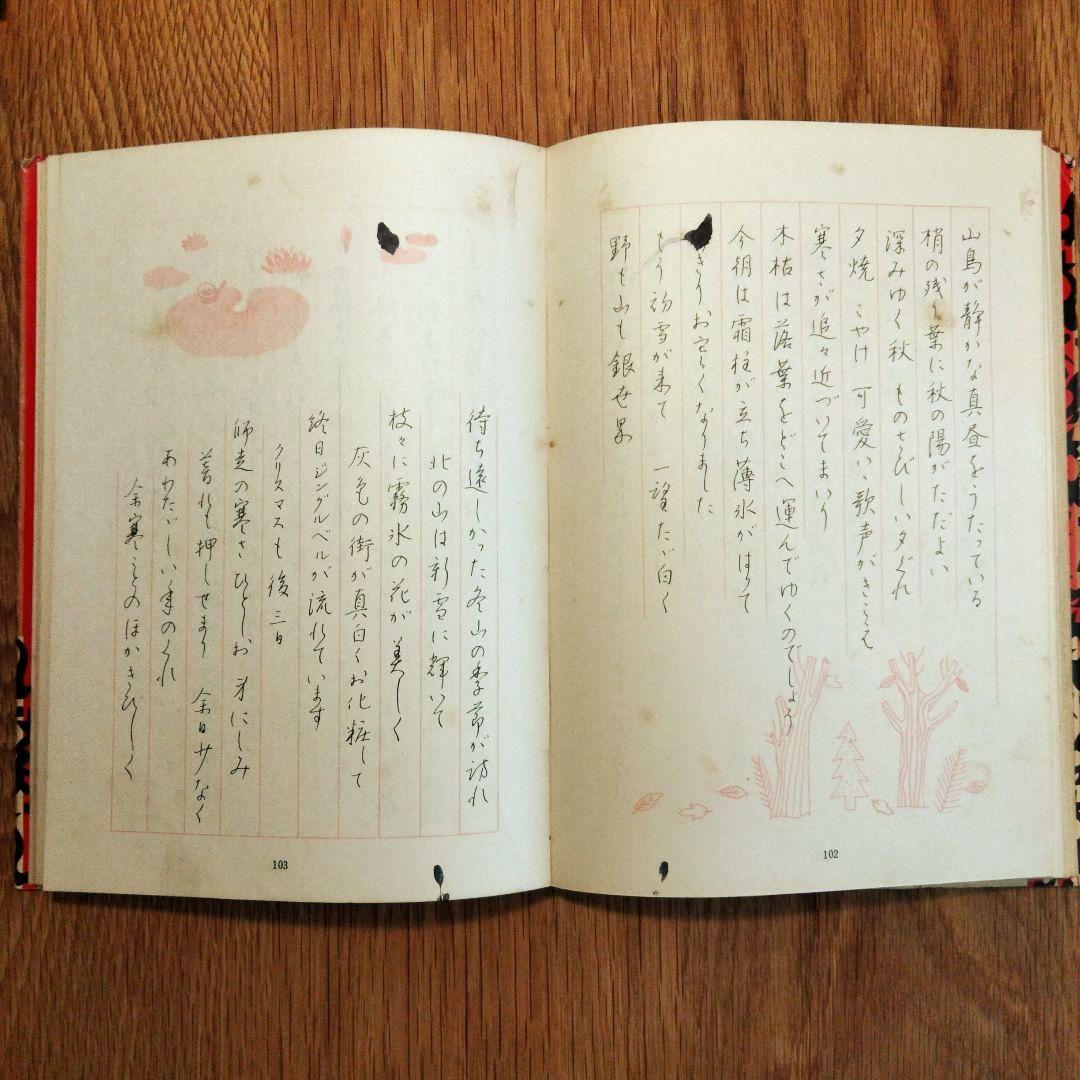 山鳥が静かな真昼をうたっている
梢の残り葉に秋の陽がただよい
深みゆく秋 ものさびしい夕ぐれ
夕焼 こやけ 可愛い歌声がきこえ
寒さが追々近づいてまいり
木枯は落葉をどこへ運んでゆくのでしょう
今朝は霜柱が立ち薄氷がはって
きりお寒くなりました
もう初雪が来て 一望ただ白く
野も山も銀世界
102
待ち遠しかった冬山の季節が訪れ
北の山は新雪に輝いて
枝々に霧氷の花が美しく
灰色の街が真白くお化粧して
終日ジングルベルが流れています
クリスマスも後三日
師走の寒さひとしお身にしみ
暮れも押しせまり 余日少なく
あわただしい年のくれ
余寒ことのほかきびしく
103